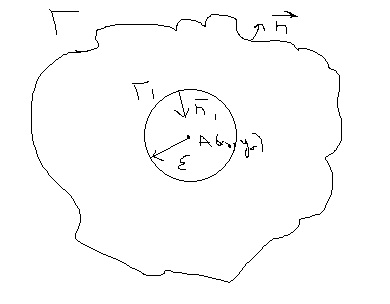 Γ
n⃗
Γ₁
n̄₁
A(x₀, y₀)
ε